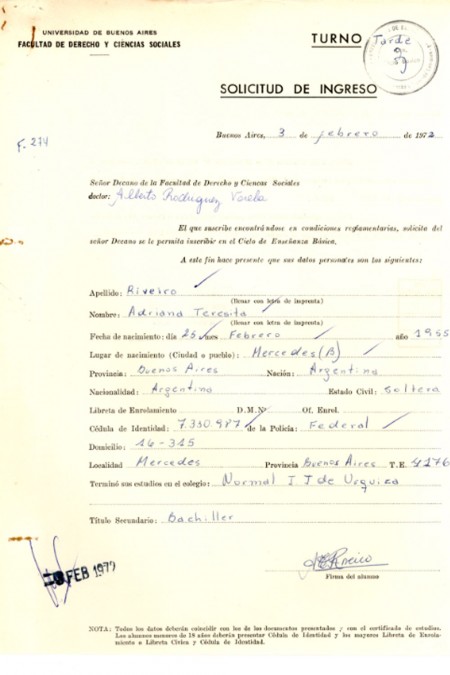 UNIVERSIDAD DE BUENOS AIRES
FACULTAD DE DERECHO Y CIENCIAS SOCIALES
TURNO
Tarde
SOLICITUD DE INGRESO
Buenos Aires, 3 de febrero de 1972
F. 274
Señor Decano de la Facultad de Derecho y Ciencias Sociales
doctor: Alberto Rodriguez Varela
El que suscribe encontrándose en condiciones reglamentarias, solicita del
señor Decano se le permita inscribir en el Ciclo de Enseñanza Básica.
A este fin hace presente que sus datos personales son los siguientes:
Apellido: Riveiro
(llenar con letra de imprenta)
Nombre: Adriana Teresita
(llenar con letra de imprenta)
Fecha de nacimiento: día 25 mes Febrero año 1955
Lugar de nacimiento (Ciudad o pueblo): Mercedes (B)
Provincia: Buenos Aires Nación: Argentina
Nacionalidad: Argentina Estado Civil: Soltera
Libreta de Enrolamiento D.M.Nº Of. Enrol.
Cédula de Identidad: 7.350.987 de la Policía: Federal
Domicilio: 14-315
Localidad Mercedes Provincia Buenos Aires T.E. 4176
Terminó sus estudios en el colegio: Normal J J de Urquiza
Título Secundario: Bachiller
Firma del alumno
FEB 1972
NOTA: Todos los datos deberán coincidir con los de los documentos presentados y con el certificado de estudios.
Los alumnos menores de 18 años deberán presentar Cédula de Identidad y los mayores Libreta de Enrola-
miento o Libreta Cívica y Cédula de Identidad.